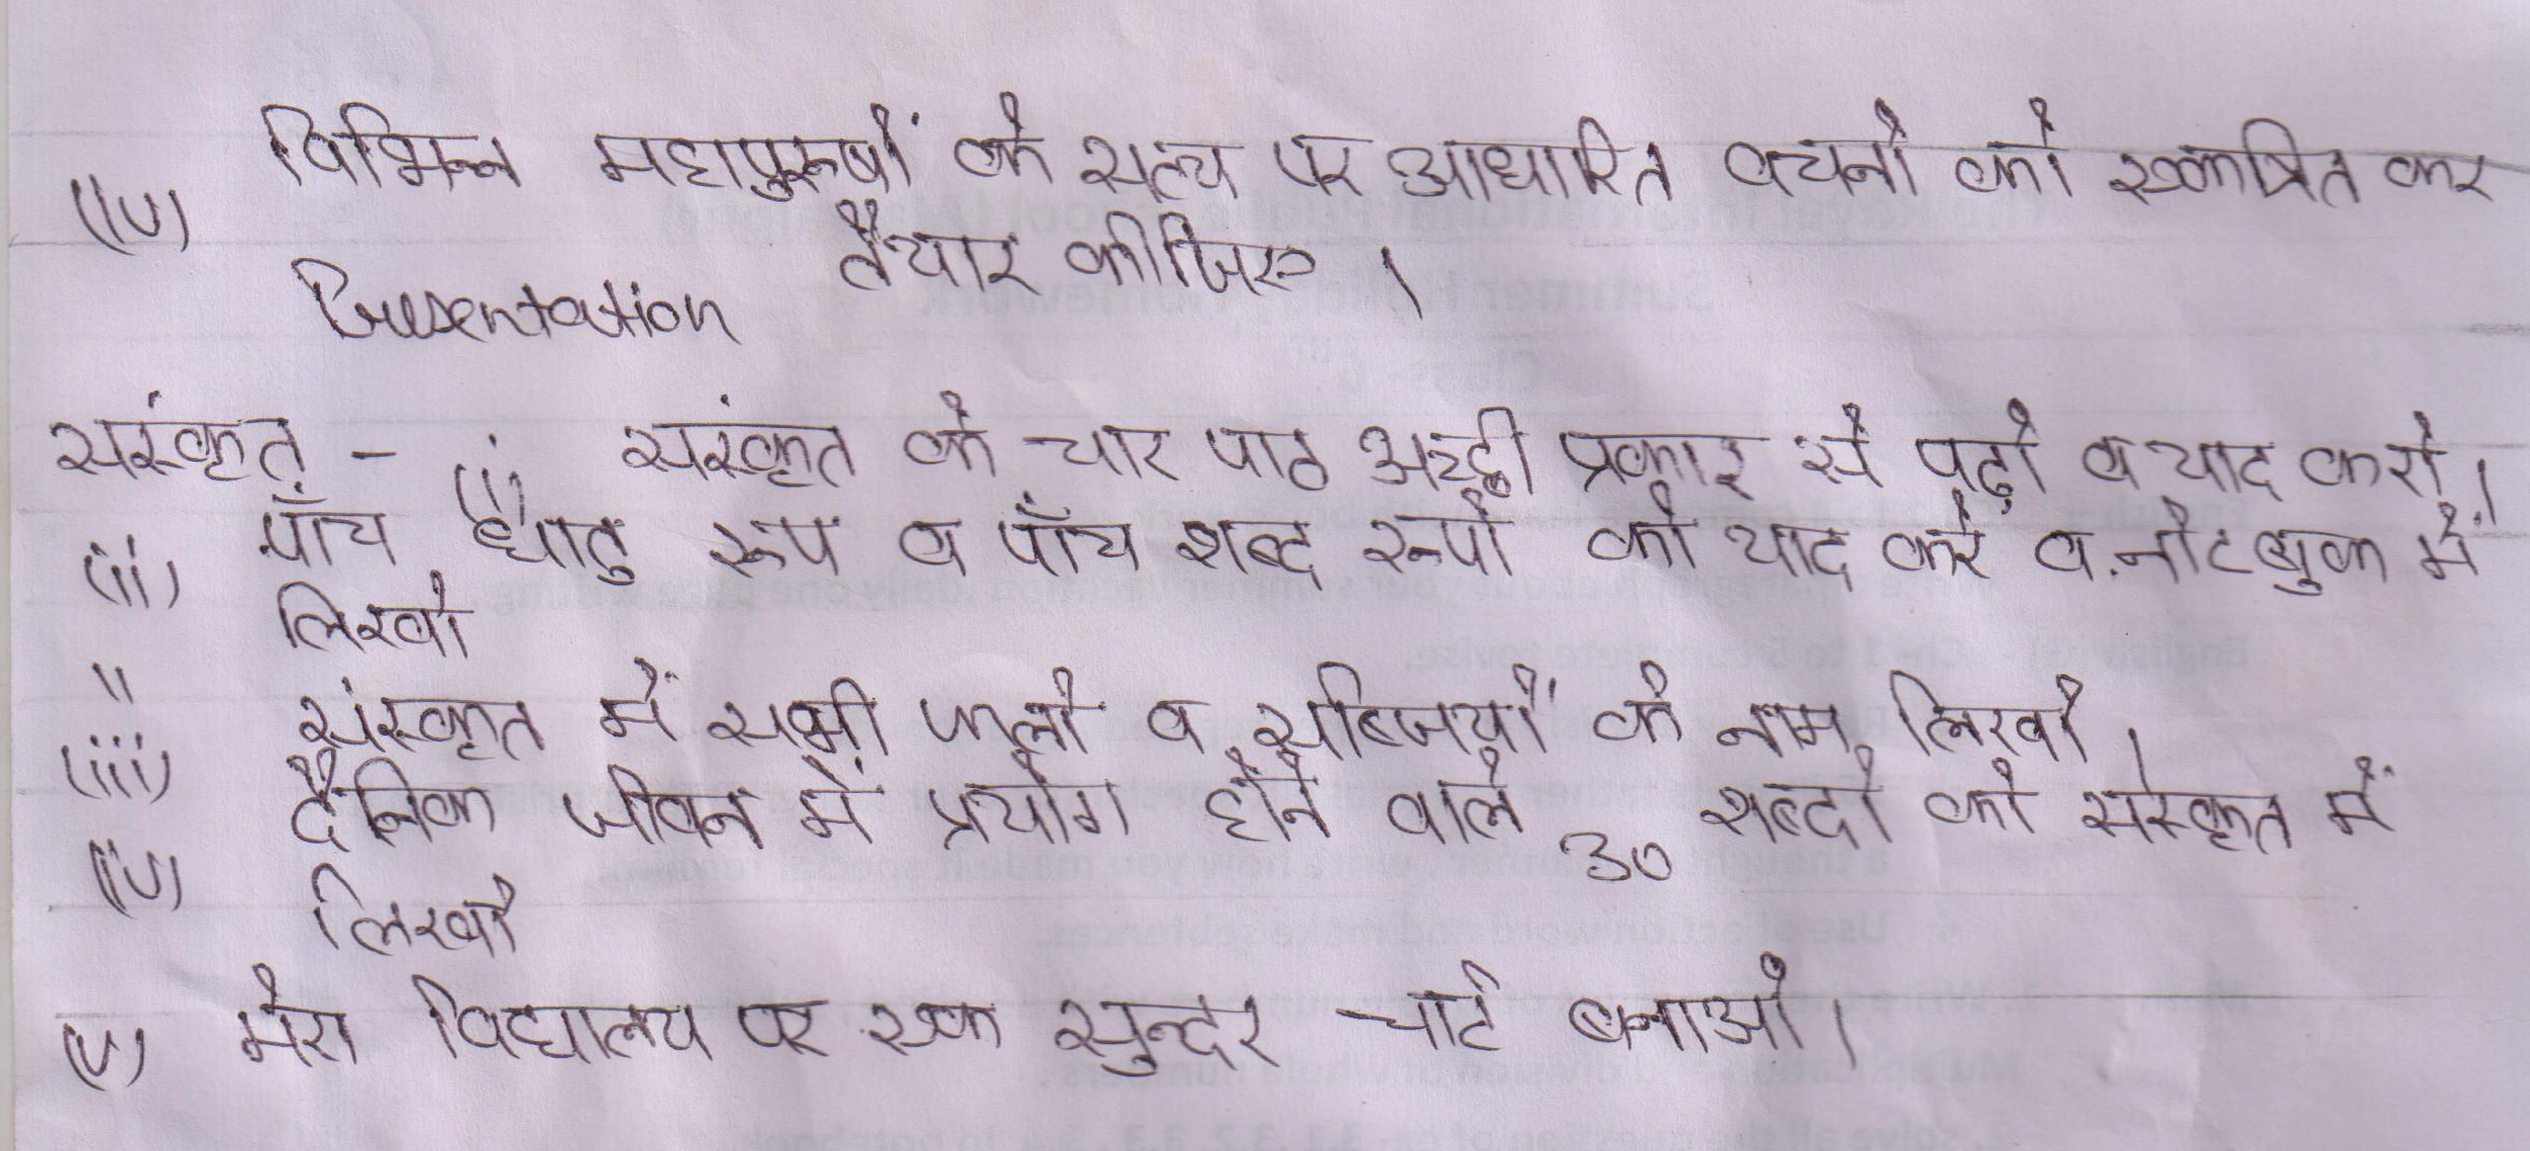 (iv) विभिन्न महापुरुषों के सत्य पर आधारित वचनो को एकत्रित कर
Presentation तैयार कीजिए ।
संस्कृत - (i) संस्कृत के चार पाठ अच्छी प्रकार से पढ़ो व याद करो ।
(ii) पाँच धातु रूप व पाँच शब्द रूपो को याद करे व नोटबुक में
लिखो
"
(iii) संस्कृत में सभी फलो व सब्जियों के नाम लिखो ।
(iv) दैनिक जीवन में प्रयोग होने वाले 30 शब्दो को संस्कृत में
लिखो
(v) मेरा विद्यालय पर एक सुन्दर चार्ट बनाओ ।